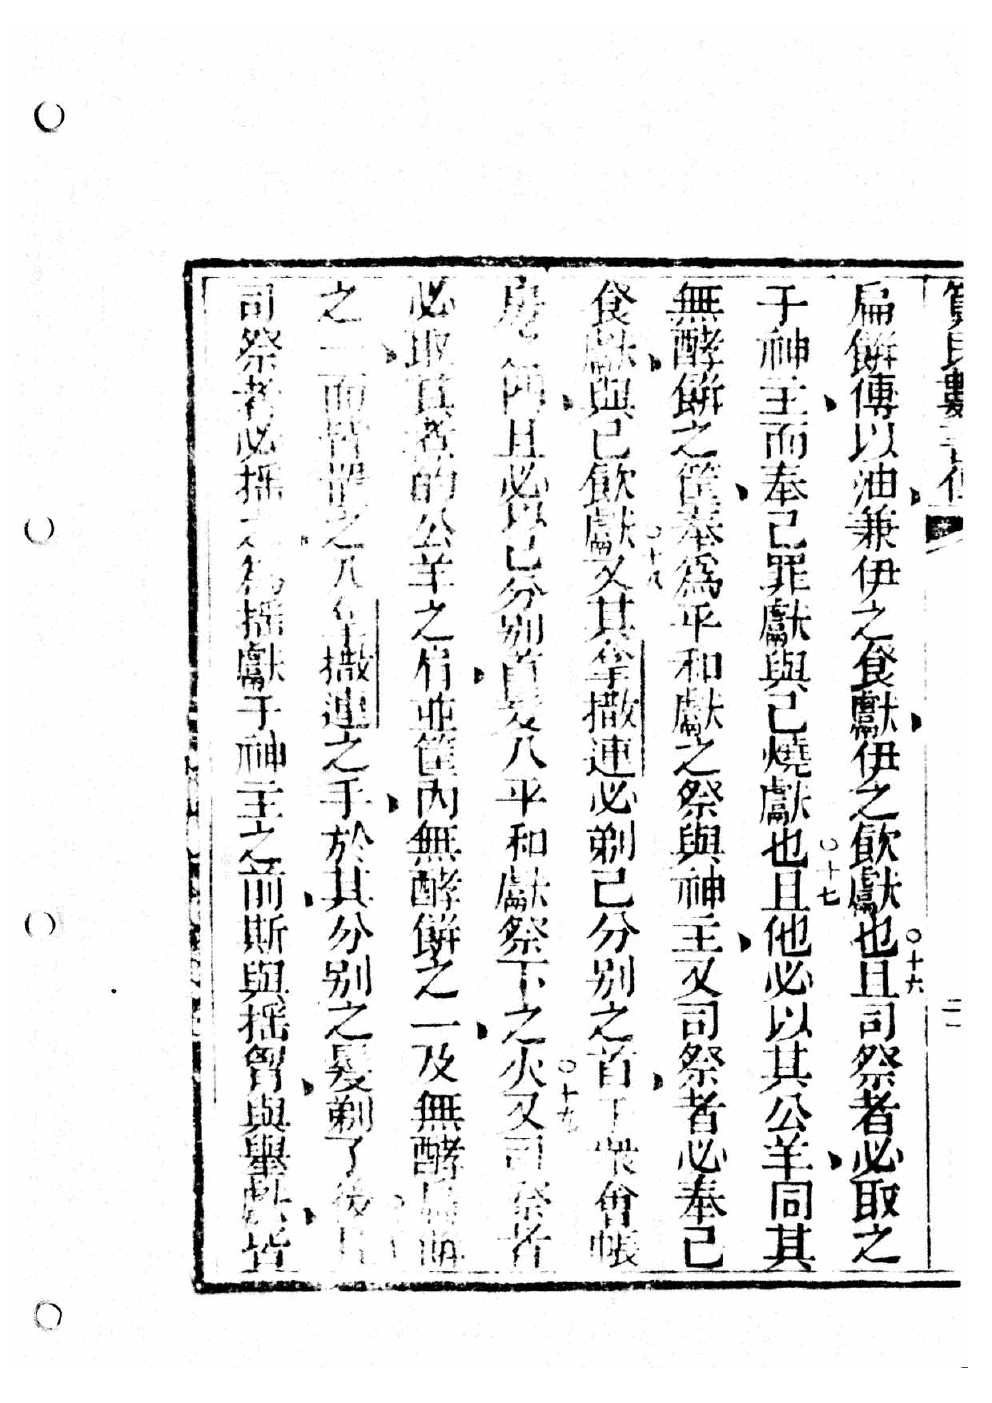 扁餅傅以油兼伊之食獻伊之飲獻也○十六且司祭者必取之
于神主而奉己罪獻與己燒獻也○十七且他必以其公羊同其
無酵餅之筐奉為平和獻之祭與神主又司祭者必奉己
食獻與己飲獻○十八又其拿撒連必剃己分別之首于眾會帳
房 門且必以己分別首髮入平和獻祭下之火○十九又司祭者
必取其煮的公羊之肩並筐內無酵餅之一及無酵扁餅
之一而皆置之於拿撒連之手於其分別之髮剃了後
司祭者必搖之為搖獻于神主之前斯與搖胷與舉 皆